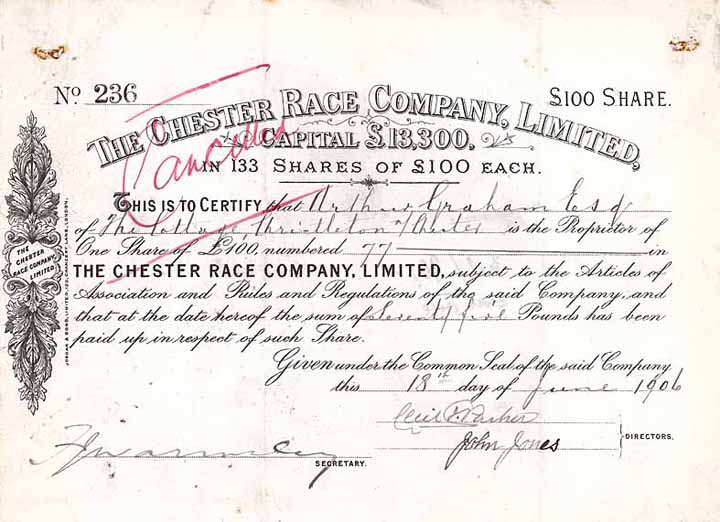 No. 236
£100 SHARE.
THE CHESTER RACE COMPANY, LIMITED,
Cancelled
CAPITAL £13,300,
IN 133 SHARES OF £100 EACH.
THIS IS TO CERTIFY that Arthur Graham Esq
of The Cottage, Christleton Chester is the Proprietor of
One Share of £100, numbered 77 in
THE CHESTER RACE COMPANY, LIMITED, subject to the Articles of
Association and Rules and Regulations of the said Company, and
that at the date hereof the sum of seventy five Pounds has been
paid up in respect of such Share.
Given under the Common Seal of the said Company
this 18th day of June 1906
Cecil T. Parker
John Jones
DIRECTORS.
SECRETARY.
THE
CHESTER
RACE COMPANY
LIMITED.
JORDAN & SONS, LIMITED, 120, CHANCERY LANE, LONDON.